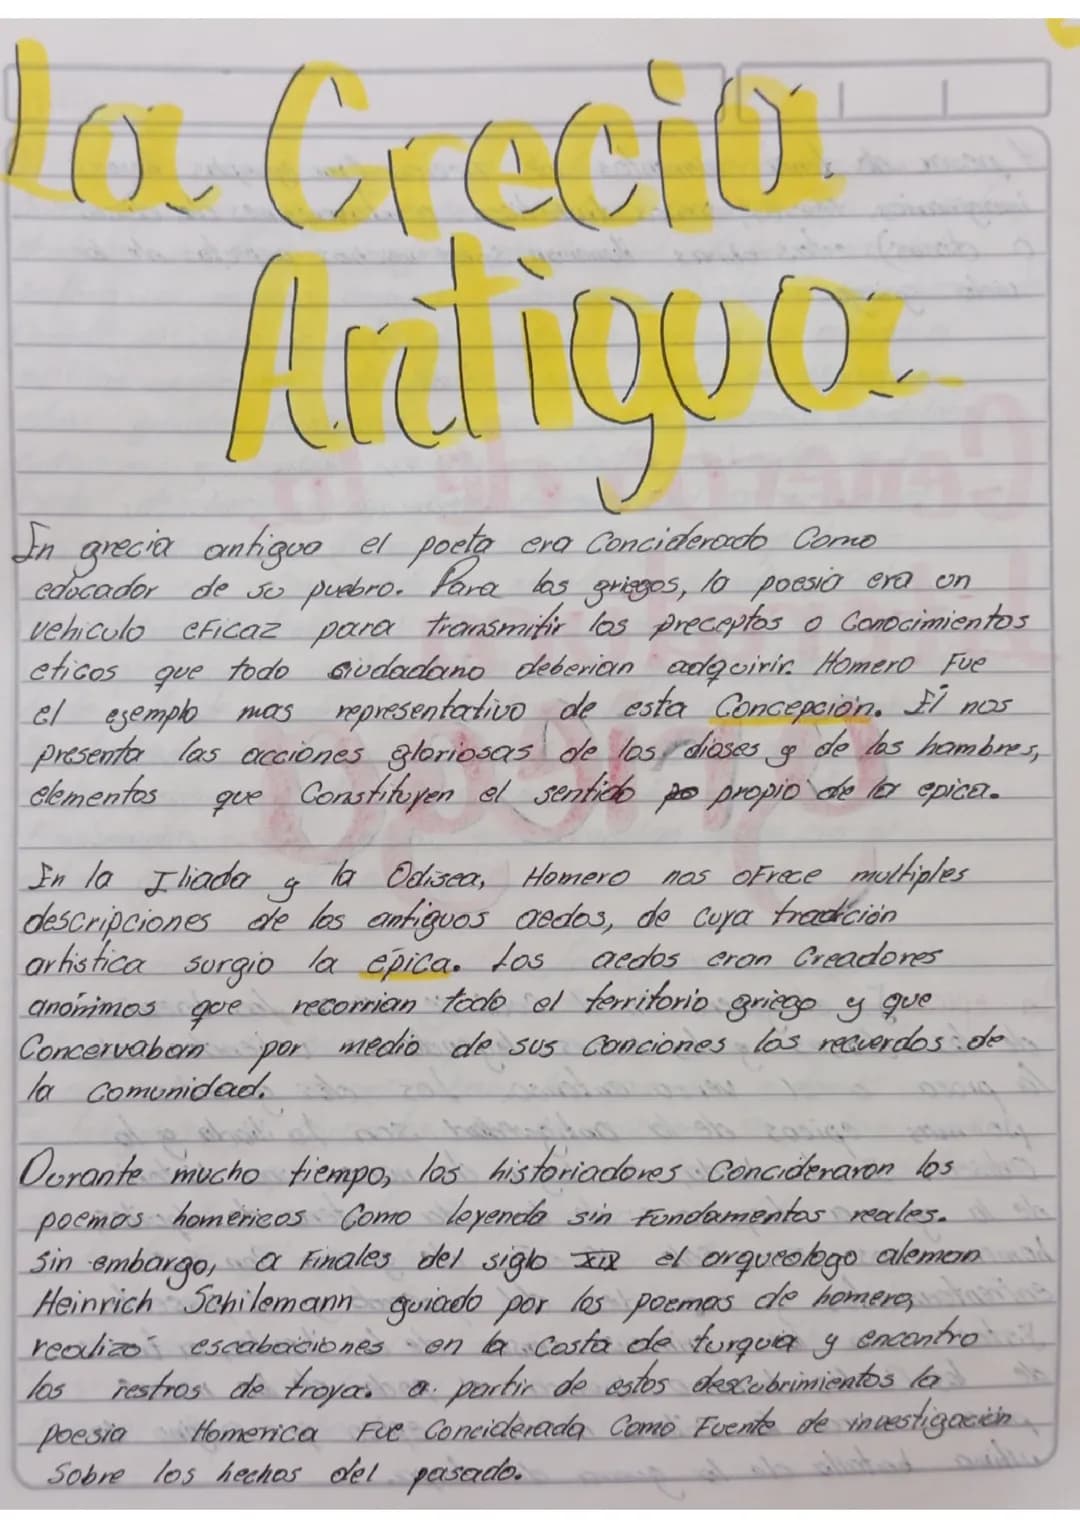 La Grecia
Antigua
En grecia antigua el poeta era Conciderado Como
educador de su puebro. Para los griegos, la poesia era un
vehiculo eficaz para transmitir los preceptos o Conocimientos
eticos que todo ciudadano deberian adquirir. Homero Fue
el egemplo mas representativo de esta Concepción. Él nos
presenta las acciones gloriosas de los dioses y de los hombres,
elementos que Constituyen el sentido po propio de la epica.
En la Iliada y la Odisea, Homero nos oFrece multiples
descripciones de los antiguos aedos, de cuya tradición
artistica surgio la épica. Los aedos eran Creadores
anónimos que recorrian todo el territorio griego y que
Concervaban por medio de sus Canciones los recuerdos de
la Comunidad.
Durante mucho tiempo, los historiadores Concideraron los
poemas homéricos Como leyenda sin Fundamentos reales.
Sin embargo, a Finales del siglo XIX el arqueologo aleman
Heinrich Schilemann guiado por los poemas de homero,
realizo escabaciones en la Costa de turquia y encontro
los restros de troya. a partir de estos descubrimientos la
poesia Homerica Fue Conciderada Como Fuente de investigación
Sobre los hechos del pasado.